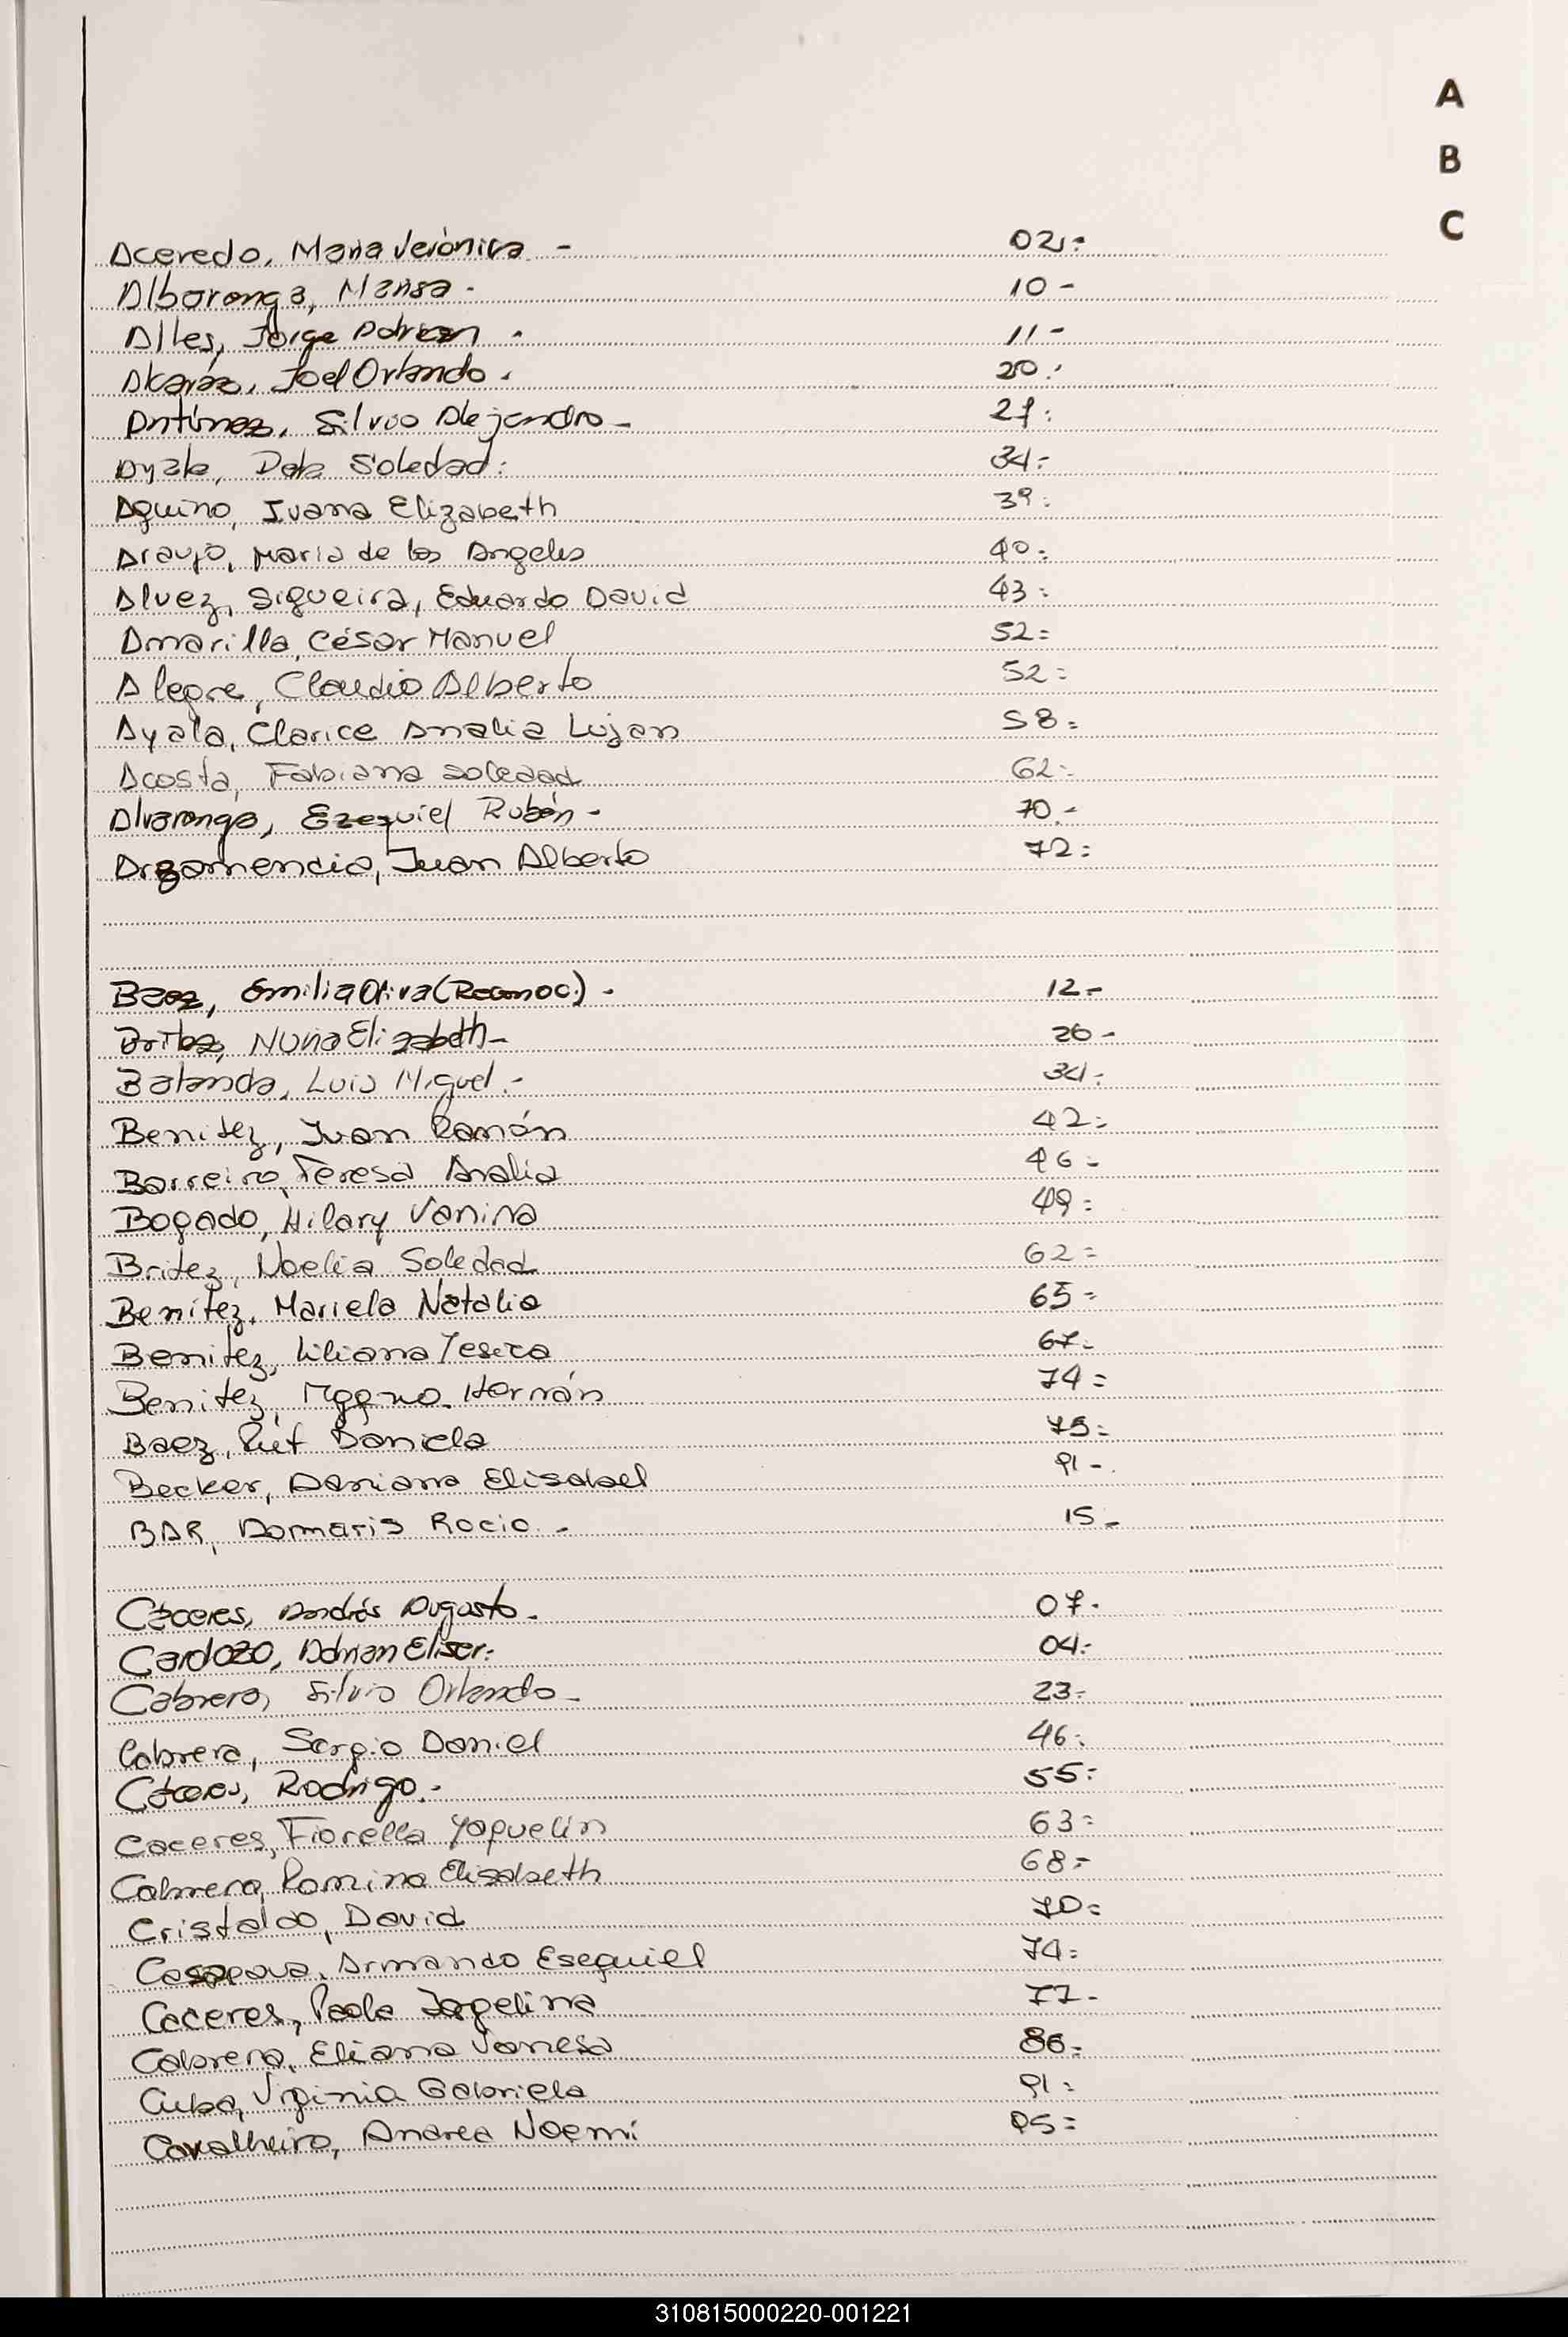 A
B
C
Acevedo, Maria Verónica - 02.=
Albarenga, Marisa - 10 -
Alles, Jorge Adrian - 11 -
Alcaráz, Joel Orlando. 20.'
Antúnez, Silvio Alejandro - 27:
Ayala, Soledad: 34:-
Aquino, Ivana Elizabeth 39:
Araujo, Maria de los Angeles 40:
Alvez, Siqueira, Eduardo David 43:
Amarilla, César Manuel 52=
Alegre, Claudio Alberto 52=
Ayala, Clarice Analia Lujan 58=
Acosta, Fabiana Soledad 62:-
Alvarenga, Ezequiel Rubén - 70.-
Argamencia, Juan Alberto 72:
Baez, Emilia Oliva (Reconoc.) - 12.-
Britez, Nuria Elizabeth - 26 -
Balanda, Luis Miguel.- 34:
Benitez, Juan Ramón 42:
Barreiro, Teresa Analia 46=
Bogado, Hilary Vanina 49:
Britez, Noelia Soledad 62=
Benítez, Mariela Natalia 65=
Benitez, Liliana Yesica 67:
Benitez, Hernán 74=
Baez, Rut Daniela 75:
Becker, Daniana Elisabel 91-.
BAR, Damaris Rocio. - 15.-
Cáceres, Andrés Augusto. - 07.
Cardozo, Adrian Eliser: 04:
Cabrera, Silvio Orlando - 23:
Cabrera, Sergio Daniel 46:
Cáceres, Rodrigo.- 55:
Caceres, Fiorella Yaquelin 63=
Cabrera, Romina Elisabeth 68:-
Cristaldo, David 70=
Casanova, Armando Esequiel 74:
Caceres, Paola Jorgelina 77-
Cabrera, Eliana Vanesa 86:
Cuba, Virginia Gabriela 91:
Cavalheiro, Andrea Noemí 95=
310815000220-001221